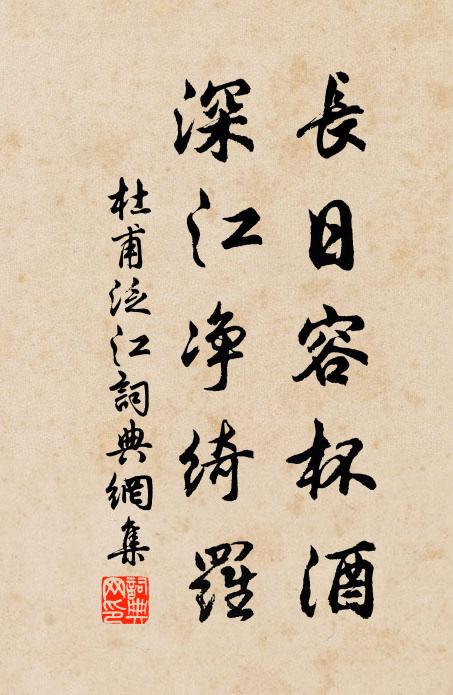 長日容杯酒
深江净綺羅
杜甫泛江詞典網集
詞典網印